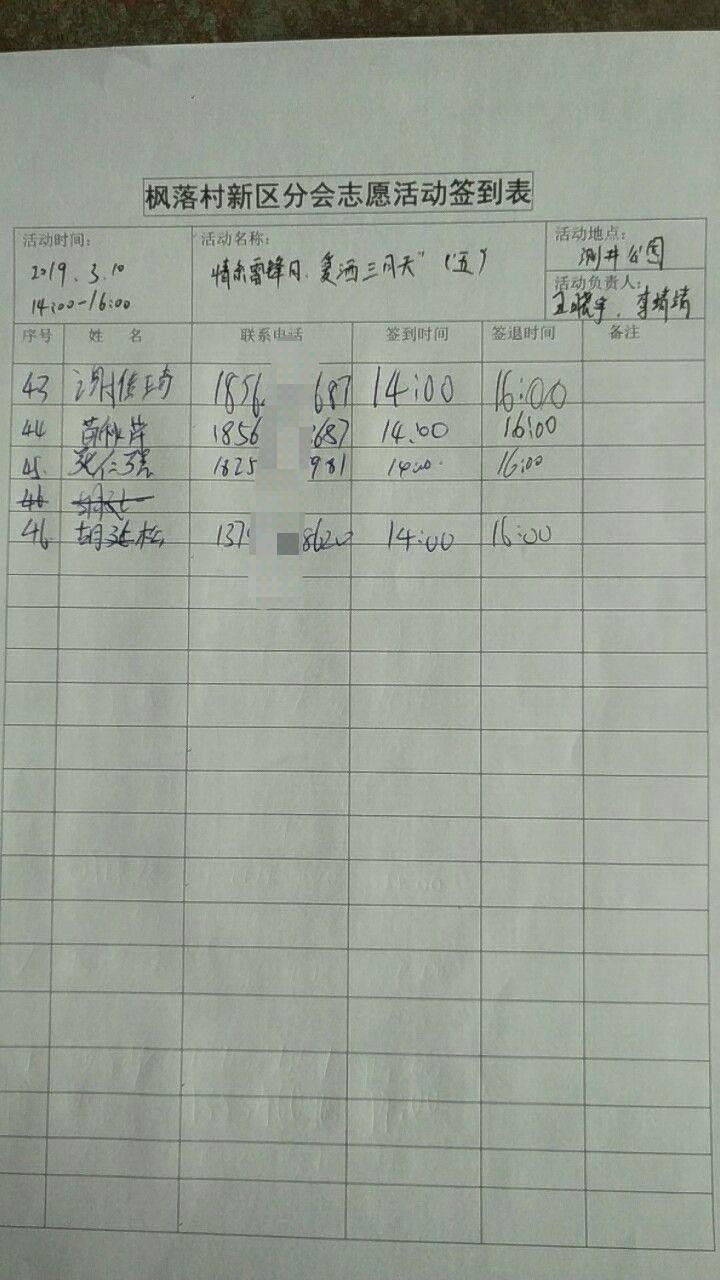 枫落村新区分会志愿活动签到表
活动时间：
2019.3.10
14:00-16:00
活动名称：
情系雷锋月、爱洒三月天”（五）
活动地点：
测井公园
活动负责人：
王晓宇、李婧婧
序号 姓 名 联系电话 签到时间 签退时间 备注
43 1856 687 14:00 16:00
44 苗秋岸 1856 687 14:00 16:00
45. 1825 981 14:00. 16:00
46
46 胡延松 137 8620 14:00 16:00